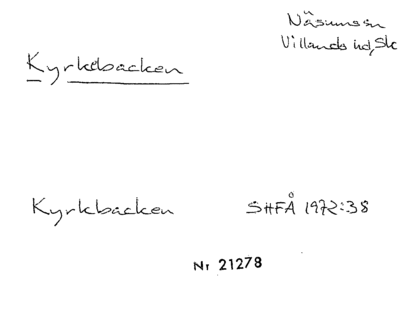 Näsums sn
Villands hd, Sk
Kyrkebacken
Kyrkbacken SHFÅ 1972:38
Nr 21278